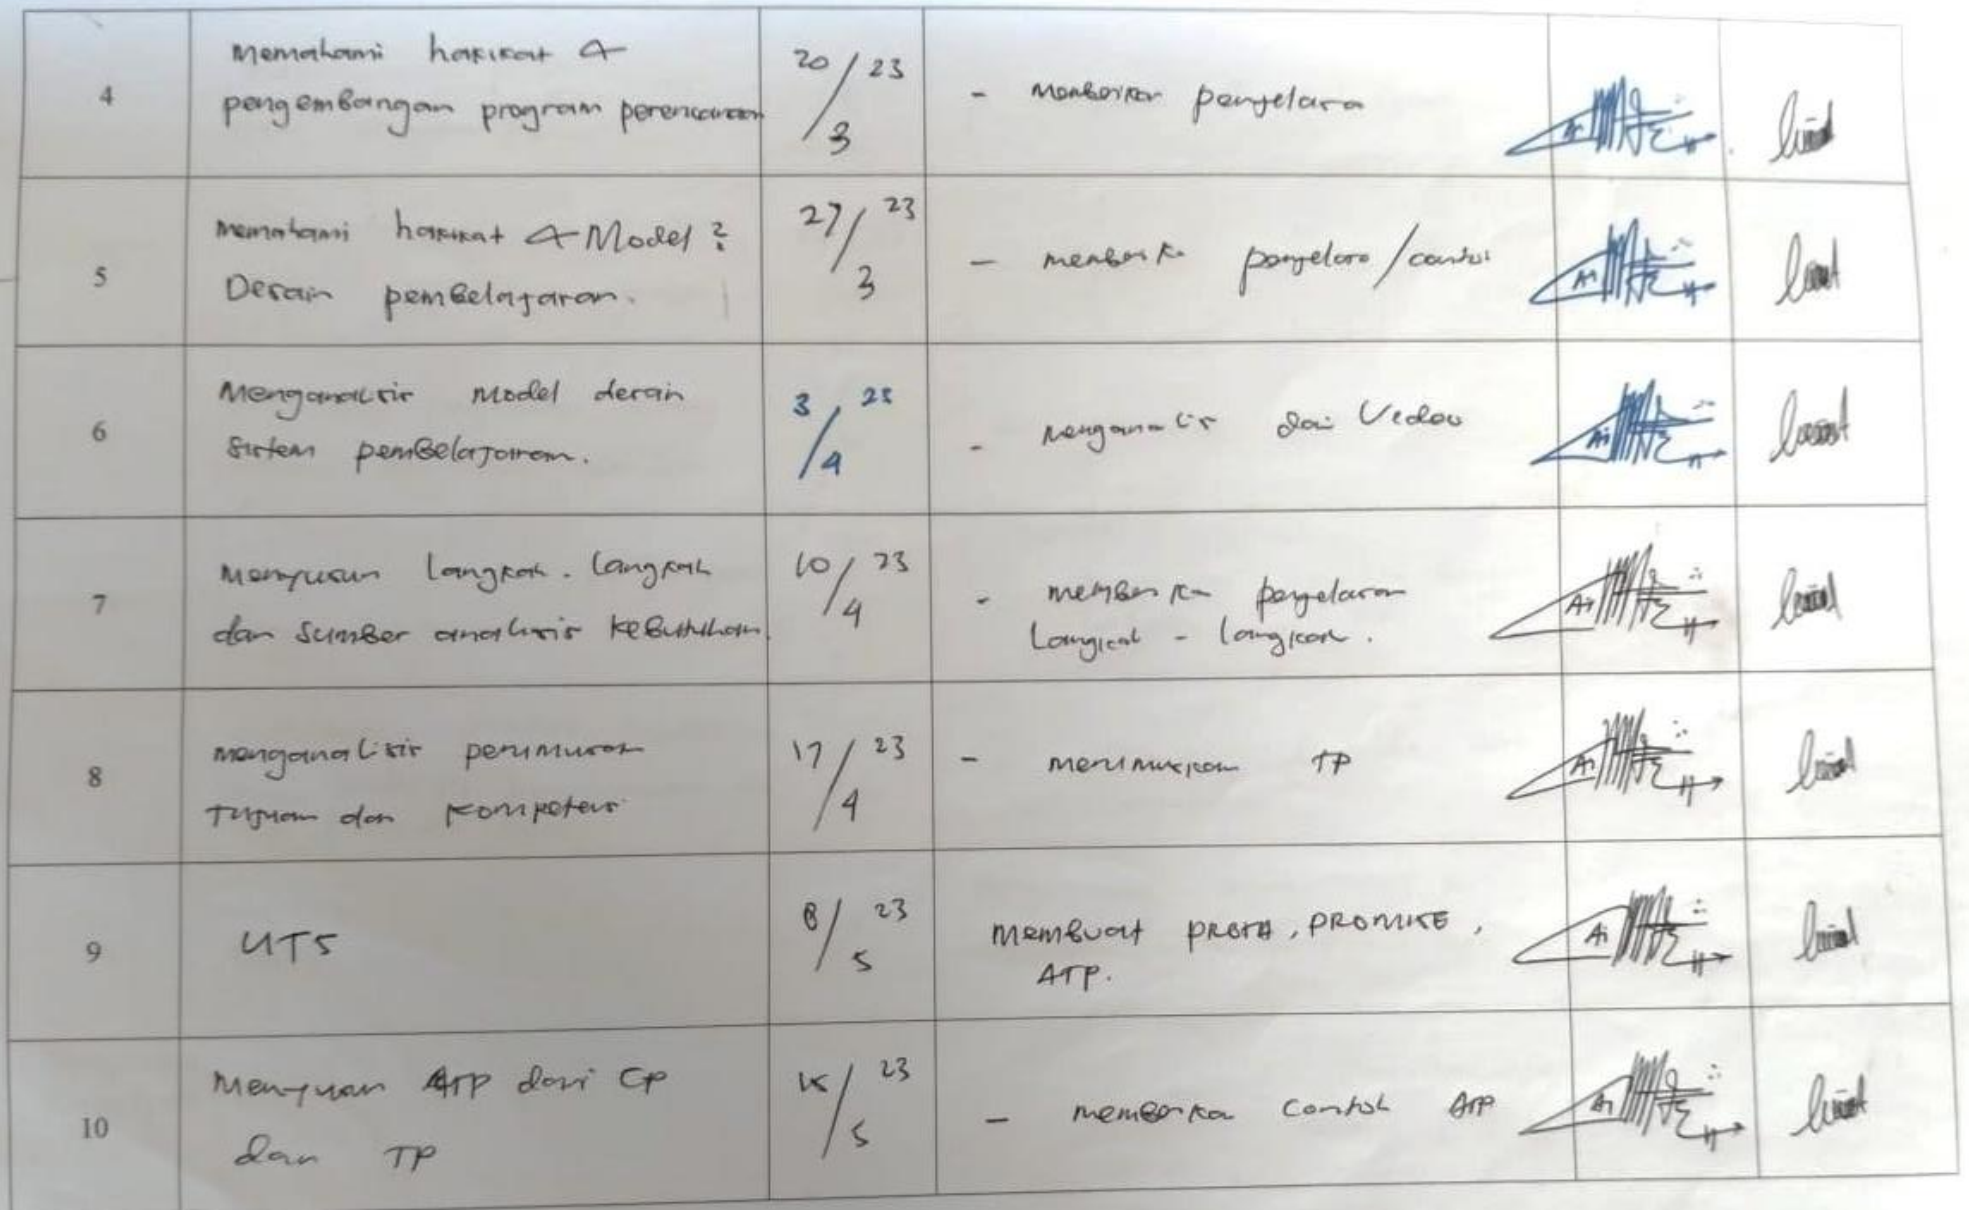 4
Memahami hakikat &
pengembangan program perencanaan
20/3 23
- Memberikan penjelasa
5
memahami hakikat & Model ²
Desain pembelajaran.
27/3 23
- memberika penjelasa / contoh
6
Menganalisis Model desain
Sistem pembelajaran.
3/4 23
- menganalisis dari Vedeo
7
Menyusun langkah - langkah
dan Sumber analisis kebutuhan
10/4 23
- memberika penjelasan
langkah - langkah.
8
menganalisis perumusan
Tujuan dan kompetensi
17/4 23
- merumuskan TP
9
UTS
8/5 23
Membuat PROTA, PROMISE,
ATP.
10
Menyusun ATP dari CP
dan TP
15/5 23
- memberika Contoh ATP